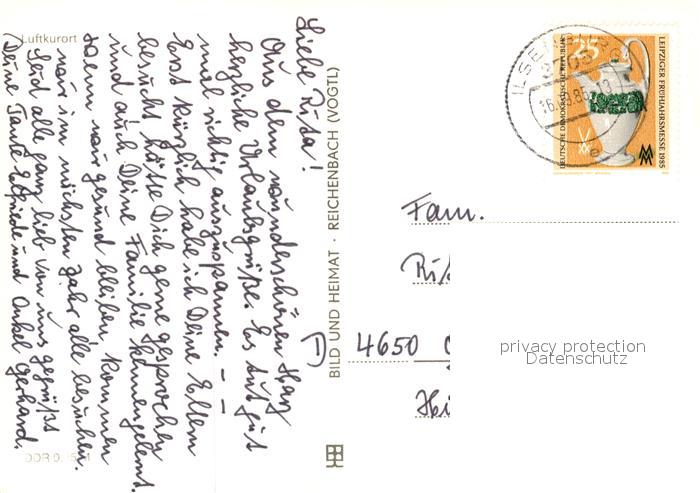 Luftkurort
Liebe Rita!
Aus dem wunderschönen Harz
herzliche Urlaubsgrüße. Es tut gut
mal richtig auszuspannen. – –
Erst kürzlich habe ich Deine Eltern
besucht hätte Dich gerne gesprochen
und auch Deine Familie kennengelernt.
Wenn wir gesund bleiben, kommen
wir im nächsten Jahr alle besuchen.
Seid alle ganz lieb von uns gegrüßt
Deine Tante Elfriede und Onkel Gerhard.
BILD UND HEIMAT · REICHENBACH (VOGTL)
25
DEUTSCHE DEMOKRATISCHE REPUBLIK
LEIPZIGER FRÜHJAHRSMESSE 1985
Fam.
D 4650
privacy protection
Datenschutz